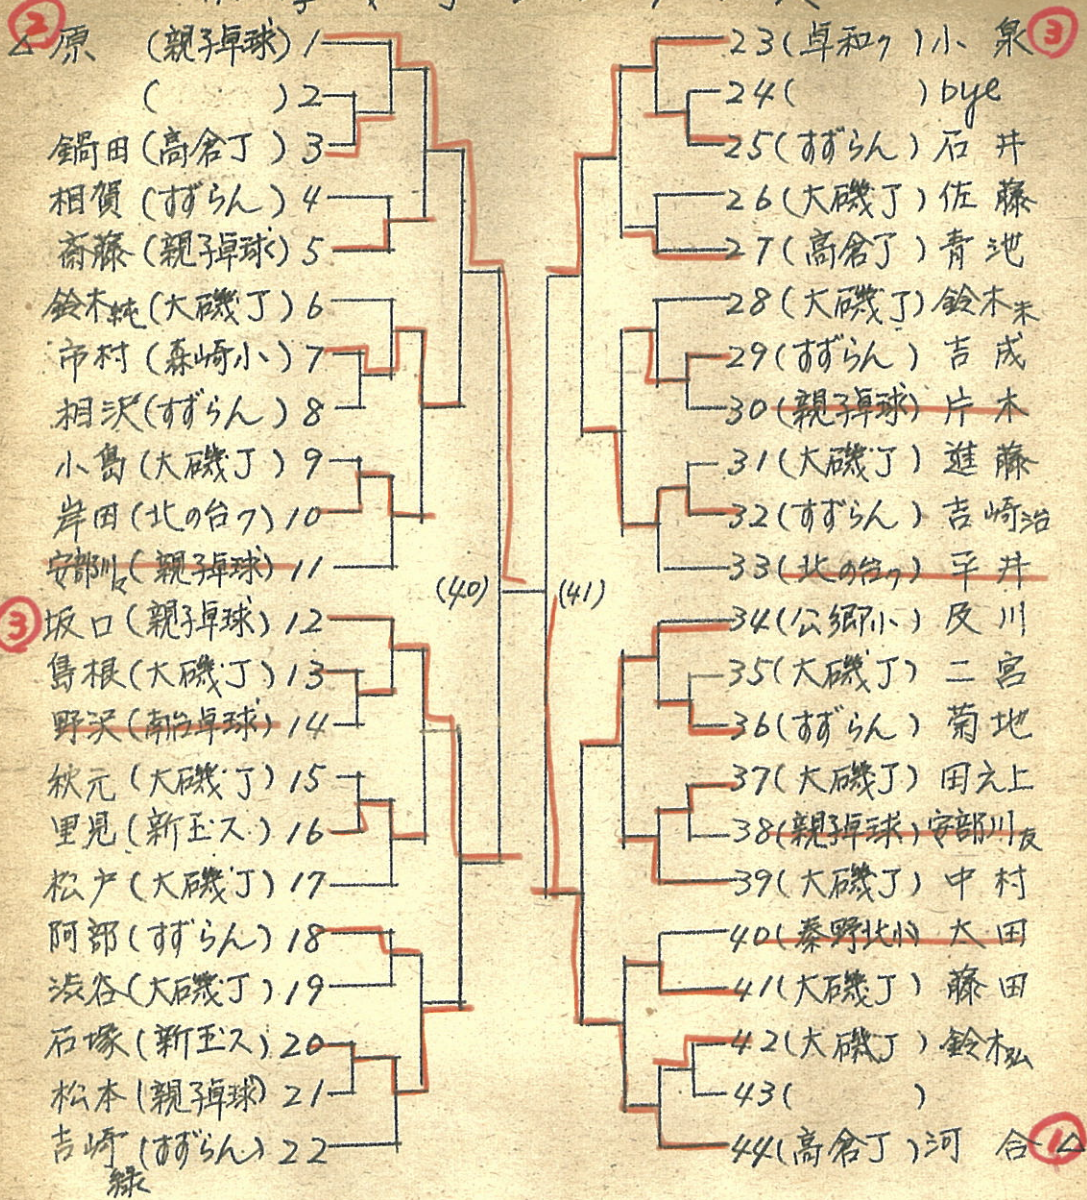 ② △ 原 (親子卓球) 1
( ) 2
鍋田 (高倉J) 3
相賀 (すずらん) 4
斎藤 (親子卓球) 5
鈴木純 (大磯J) 6
市村 (森崎小) 7
相沢 (すずらん) 8
小島 (大磯J) 9
岸田 (北の台ク) 10
安部川友 (親子卓球) 11
③ 坂口 (親子卓球) 12
島根 (大磯J) 13
野沢 (南台卓球) 14
秋元 (大磯J) 15
里見 (新玉ス) 16
松戸 (大磯J) 17
阿部 (すずらん) 18
渋谷 (大磯J) 19
石塚 (新玉ス) 20
松本 (親子卓球) 21
吉崎緑 (すずらん) 22
(40) (41)
23 (卓和ク) 小泉 ③
24 ( ) bye
25 (すずらん) 石井
26 (大磯J) 佐藤
27 (高倉J) 青池
28 (大磯J) 鈴木朱
29 (すずらん) 吉成
30 (親子卓球) 片木
31 (大磯J) 進藤
32 (すずらん) 吉崎治
33 (北の台ク) 平井
34 (公郷小) 及川
35 (大磯J) 二宮
36 (すずらん) 菊地
37 (大磯J) 田之上
38 (親子卓球) 安部川友
39 (大磯J) 中村
40 (秦野北小) 太田
41 (大磯J) 藤田
42 (大磯J) 鈴木弘
43 ( )
44 (高倉J) 河合 ① △